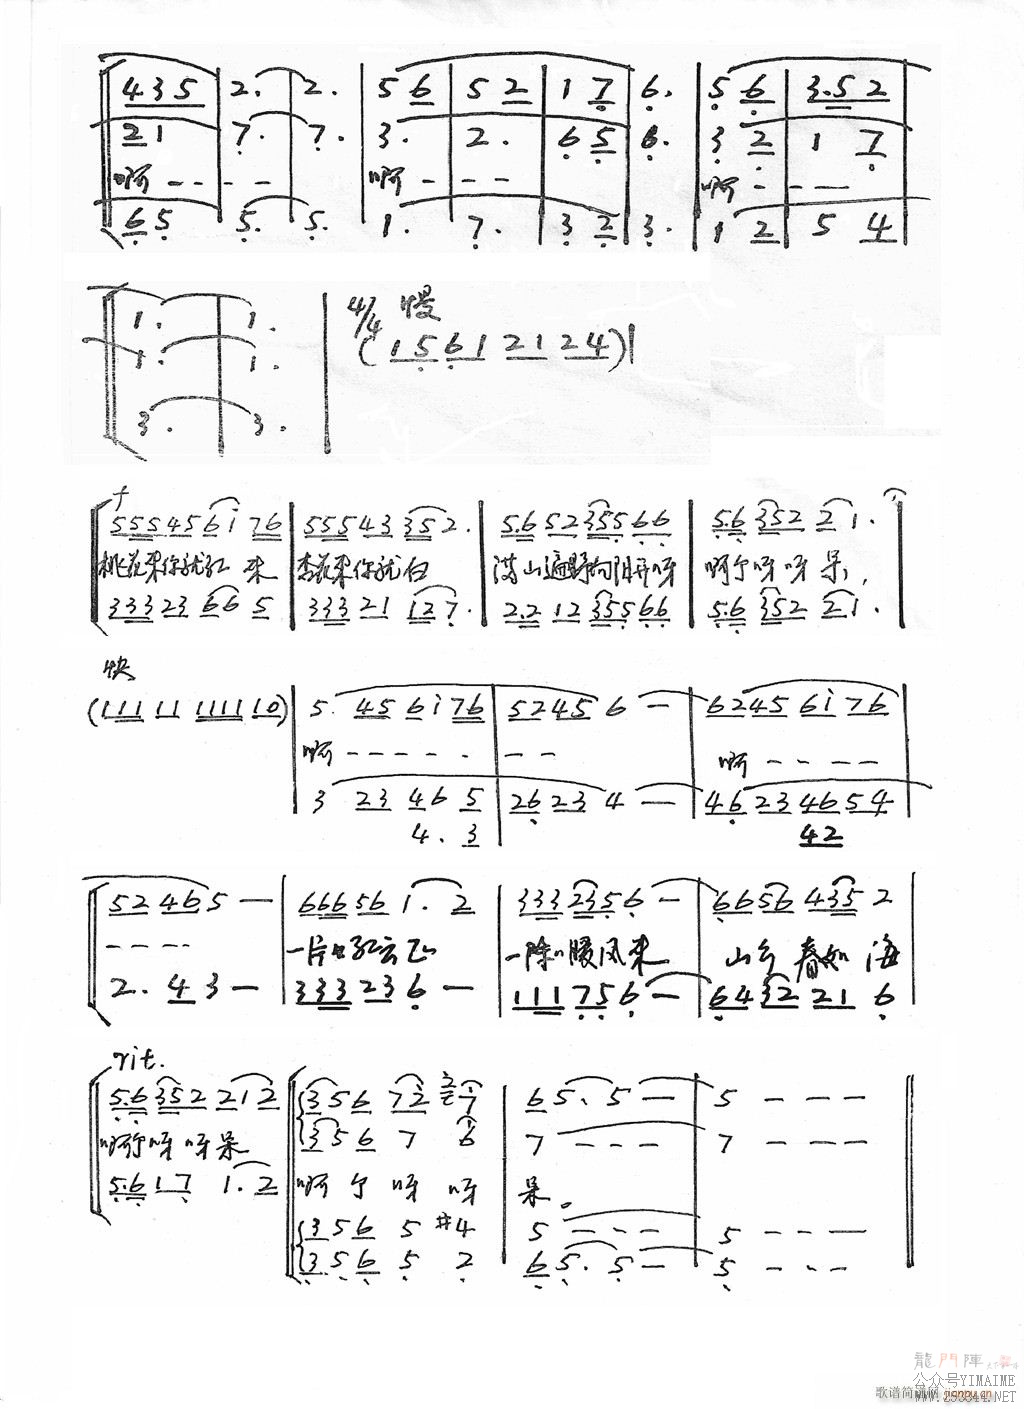 435 | 2. | 2. | 56 | 52 | 17 | 6. | 56 | 3.52
21 | 7. | 7. | 3. | 2. | 65 | 6. | 32 | 1 7
啊 - - - - 啊 - - - 啊 - - —
65 | 5. | 5. | 1. | 7. | 32 | 3. | 12 | 5 4
1. | 1. | 4/4 慢
1. | 1. | (15 61 21 24) |
3. | 3.
f
555 45 6i 76 | 555 43 35 2. | 5.6 52 355 66 | 5.6 352 2 1.
桃花来你就红 来 李花来你就白 满山遍野向阳开呀 啊尔呀 呀 呆,
333 23 66 5 | 333 21 12 7. | 2.2 12 355 66 | 5.6 352 2 1.
快
(111 11 1111 10) | 5. 45 6i 76 | 5245 6 — | 6245 6i 76
啊 - - - - - - - 啊 - - - -
3 23 46 5 | 26 23 4 — | 46 23 46 54
4. 3 42
52 46 5 — | 666 56 1. 2 | 333 235 6 — | 66 56 435 2
- - - - 一片 红云 一阵 暖风来 山乡 春如 海
2. 4 3 — | 333 23 6 — | 111 75 6 — | 64 32 21 6
rit.
5.6 352 21 2 | 356 72 7 | 65. 5 — | 5 - - -
356 7 6 | 7 - - - | 7 - - -
啊尔呀 呀呆 啊 尔 呀 呀 呆。
5.6 17 1. 2 | 356 5 #4 | 5 - - - | 5 - - —
356 5 2 | 65. 5 — | 5 - - -
龍門陣
公众号YIMAIME
歌谱简谱网 jianpu.cn
www.253844.NET